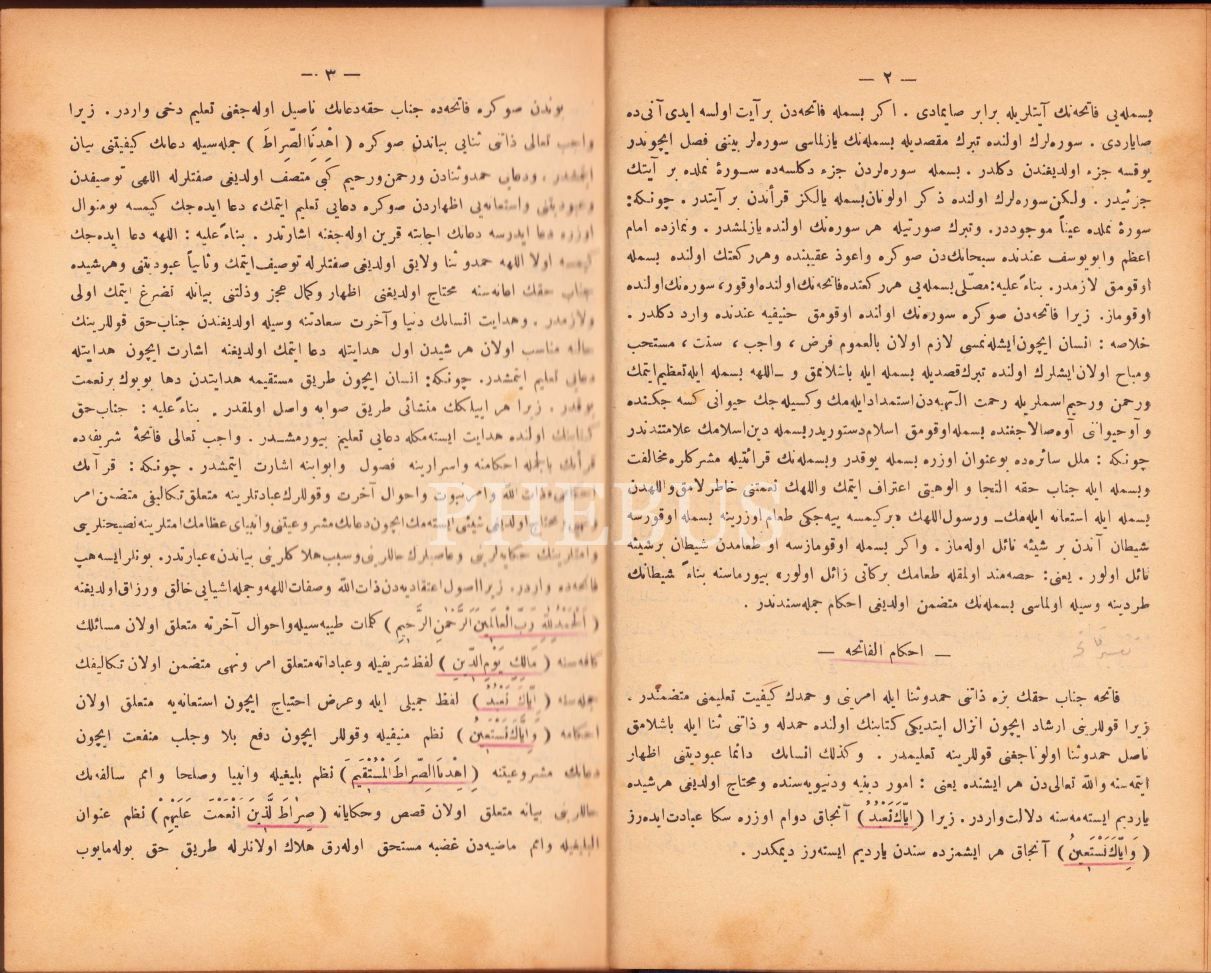 — ٢ —
بسمله‌یی فاتحه‌نك آیتلریله برابر صایمادی . اكر بسمله فاتحه‌دن بر آیت اولسه ایدی آنی‌ده
صایاردی . سوره‌لرك اولنده تبرك مقصدیله بسمله‌نك یازلماسی سوره‌لر بیننی فصل ایچوندر
یوقسه جزء اولدیغندن دكلدر . بسمله سوره‌لردن جزء دكلسه‌ده سورهٔ نملده بر آیتك
جزئیدر . ولكن سوره‌لرك اولنده ذكر اولونان بسمله یالكز قرأندن بر آیتدر . چونكه:
سورهٔ نملده عیناً موجوددر. وتبرك صورتیله هر سوره‌نك اولنده یازلمشدر . ونمازده امام
اعظم وابویوسف عندنده سبحانك‌دن صوكره واعوذ عقیبنده وهر ركعتك اولنده بسمله
اوقومق لازمدر. بناءً علیه: مصلّی بسمله‌یی هر ركعتده فاتحه‌نك اولنده اوقور، سوره‌نك اولنده
اوقوماز. زیرا فاتحه‌دن صوكره سوره‌نك اولنده اوقومق حنیفیه عندنده وارد دكلدر .
خلاصه : انسان ایچون ایشله‌نمسی لازم اولان بالعموم فرض ، واجب ، سنت ، مستحب
ومباح اولان ایشلرك اولنده تبرك قصدیله بسمله ایله باشلانمق و ـ اللهه بسمله ایله تعظیم ایتمك
ورحمن ورحیم اسملریله رحمت الٓهیه‌دن استمداد ایله‌مك وكسیله‌جك حیوانی كسه جكنده
و آوحیوانی آوه صالاجغنده بسمله اوقومق اسلام دستوریدر بسمله دین اسلامك علامتندندر
چونكه : ملل سائره‌ده بوعنوان اوزره بسمله یوقدر وبسمله‌نك قرائتیله مشركلره مخالفت
وبسمله ایله جناب حقه التجا و الوهیتی اعتراف ایتمك واللهك نعمتنی خاطرلامق واللهدن
بسمله ایله استعانه ایله‌مك ـ ورسول‌اللهك «بركیمسه ییه‌جكی طعام اوزرینه بسمله اوقورسه
شیطان آندن بر شیئه نائل اوله‌ماز . واكر بسمله اوقومازسه او طعامدن شیطان برشیئه
نائل اولور . یعنی: حصه‌مند اولمقله طعامك بركاتی زائل اولور» بیورماسنه بناءً شیطانك
طردینه وسیله اولماسی بسمله‌نك متضمن اولدیغی احكام جمله‌سندندر .
— احكام الفاتحه —
فاتحه جناب حقك بزه ذاتنی حمدوثنا ایله امرنی و حمدك كیفیت تعلیمنی متضمندر .
زیرا قوللرینی ارشاد ایچون انزال ایتدیكی كتابنك اولنده حمدله و ذاتنی ثنا ایله باشلامق
ناصل حمدوثنا اولوناجغنی قوللرینه تعلیمدر . وكذلك انسانك دائما عبودیتنی اظهار
ایتمه‌سنه والله تعالی‌دن هر ایشنده یعنی : امور دینیه ودنیویه‌سنده ومحتاج اولدیغی هرشیده
یاردیم ایسته‌مه‌سنه دلالت واردر. زیرا ( اِیَّاكَ نَعْبُدُ ) آنجاق دوام اوزره سكا عبادت ایده‌رز
( وَاِیَّاكَ نَسْتَعِینُ ) آنجاق هر ایشمزده سندن یاردیم ایسته‌رز دیمكدر .
— ٣ —
بوندن صوكره فاتحه‌ده جناب حقه دعانك ناصیل اوله‌جغنی تعلیم دخی واردر . زیرا
واجب تعالی ذاتنی ثنایی بیاندن صوكره ( اِهْدِنَا الصِّرَاطَ ) جمله‌سیله دعانك كیفیتنی بیان
ایتمشدر . ودعایی حمدوثنادن ورحمن ورحیم كبی متصف اولدیغی صفتلرله اللهی توصیفدن
وعبودیتنی واستعانه‌یی اظهاردن صوكره دعایی تعلیم ایتمك، دعا ایده‌جك كیمسه بومنوال
اوزره دعا ایدرسه دعانك اجابته قرین اوله‌جغنه اشارتدر . بناءً علیه : اللهه دعا ایده‌جك
كیمسه اولا اللهه حمدوثنا ولایق اولدیغی صفتلرله توصیف ایتمك وثانیاً عبودیتنی وهرشیده
جناب حقك اعانه‌سنه محتاج اولدیغنی اظهار وكمال عجز وذلتنی بیانله تضرع ایتمك اولی
ولازمدر . وهدایت انسانك دنیا وآخرت سعادتنه وسیله اولدیغندن جناب‌حق قوللرینك
حالنه مناسب اولان هر شیدن اول هدایتله دعا ایتمك اولدیغنه اشارت ایچون هدایتله
دعایی تعلیم ایتمشدر. چونكه: انسان ایچون طریق مستقیمه هدایتدن دها بویوك بر نعمت
یوقدر . زیرا هر اییلكك منشائی طریق صوابه واصل اولمقدر . بناءً علیه : جناب حق
كتابنك اولنده هدایت ایسته‌مكله دعایی تعلیم بیورمشدر . واجب تعالی فاتحهٔ شریفه‌ده
قرأنك بالجمله احكامنه واسرارینه فصول وابوابنه اشارت ایتمشدر . چونكه : قرآنك
احكامی ذات الله وامر نبوت واحوال آخرت وقوللرك عبادتلرینه متعلق تكالیفی متضمن امر
ونهیی، محتاج اولدیغی شیئی ایسته‌مك ایچون دعانك مشروعیتنی وانبیای عظامك امتلرینه نصیحتلرینی
وامتلرینك حكایه‌لرینی وعاصیلرك حاللرینی وسبب هلاكلرینی بیاندن» عبارتدر. بونلر ایسه هپ
فاتحه‌ده واردر. زیرا اصول اعتقادیه‌دن ذات الله وصفات اللهه وجمله اشیایی خالق ورزاق اولدیغنه
( اَلْحَمْدُ لِلّٰهِ رَبِّ الْعَالَمِینَ اَلرَّحْمٰنِ الرَّحِیمِ ) كلمات طیبه‌سیله واحوال آخرته متعلق اولان مسائلك
كافه‌سنه ( مَالِكِ یَوْمِ الدِّینِ ) لفظ شریفیله وعباداته متعلق امر ونهی متضمن اولان تكالیفك
جمله‌سنه ( اِیَّاكَ نَعْبُدُ ) لفظ جمیلی ایله وعرض احتیاج ایچون استعانه‌یه متعلق اولان
احكامه ( وَاِیَّاكَ نَسْتَعِینُ ) نظم منیفیله وقوللر ایچون دفع بلا وجلب منفعت ایچون
دعانك مشروعیتنه ( اِهْدِنَا الصِّرَاطَ الْمُسْتَقِیمَ ) نظم بلیغیله وانبیا وصلحا وامم سالفه‌نك
حاللرینی بیانه متعلق اولان قصص وحكایاته ( صِرَاطَ الَّذِینَ اَنْعَمْتَ عَلَیْهِمْ ) نظم عنوان
البلیغیله وامم ماضیه‌دن غضبه مستحق اوله‌رق هلاك اولانلرله طریق حق بوله‌مایوب
PHEBUS